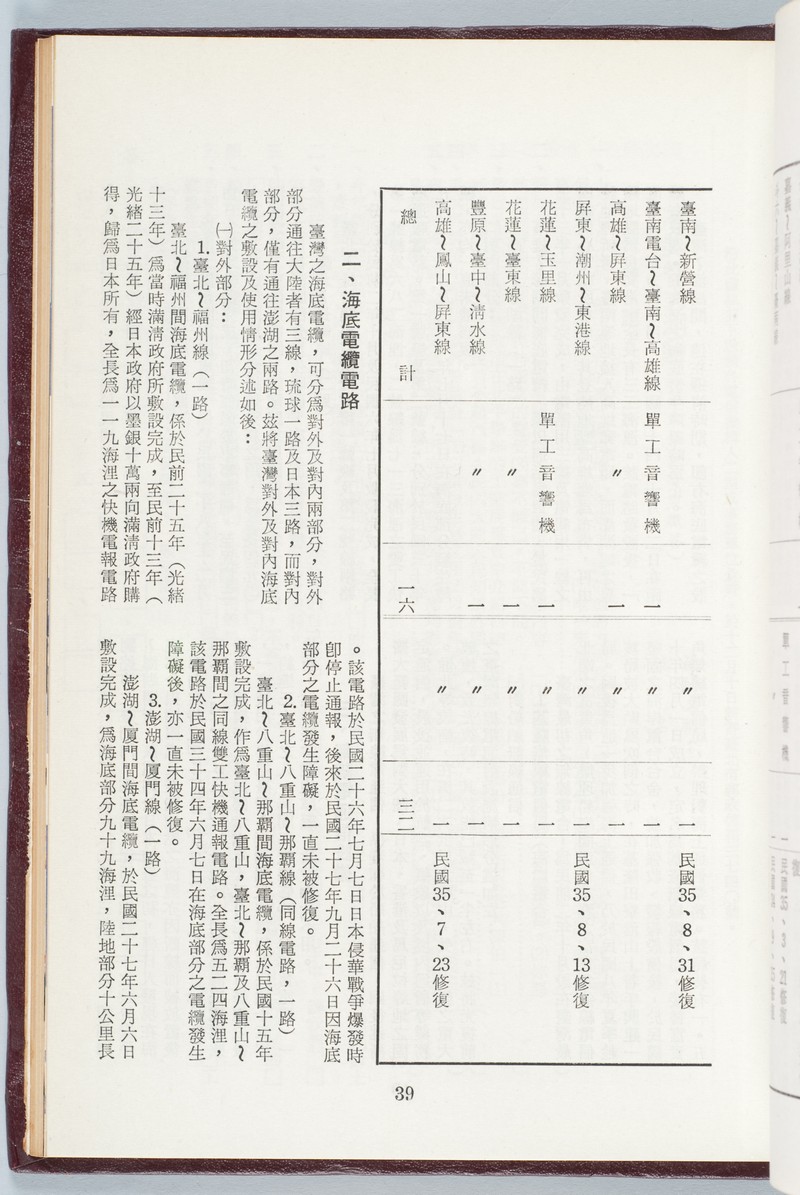 臺南～新營線　〃　一　民國35、8、31修復
臺南電台～臺南～高雄線　單工音響機　一　〃　一
高雄～屏東線　〃　一　〃　一
屏東～潮州～東港線　〃　一　民國35、8、13修復
花蓮～玉里線　單工音響機　一　〃　一
花蓮～臺東線　〃　一　〃　一
豐原～臺中～清水線　〃　一　〃　一
高雄～鳳山～屏東線　〃　一　民國35、7、23修復
總計　一六　三二
二、海底電纜電路
臺灣之海底電纜，可分爲對外及對內兩部分，對外
部分通往大陸者有三線，琉球一路及日本三路，而對內
部分，僅有通往澎湖之兩路。茲將臺灣對外及對內海底
電纜之敷設及使用情形分述如後：
㈠對外部分：
1.臺北～福州線（一路）
臺北～福州間海底電纜，係於民前二十五年（光緒
十三年）爲當時滿淸政府所敷設完成，至民前十三年（
光緒二十五年）經日本政府以墨銀十萬兩向滿淸政府購
得，歸爲日本所有，全長爲一一九海浬之快機電報電路
。該電路於民國二十六年七月七日日本侵華戰爭爆發時
卽停止通報，後來於民國二十七年九月二十六日因海底
部分之電纜發生障礙，一直未被修復。
2.臺北～八重山～那覇線（同線電路，一路）
臺北～八重山～那覇間海底電纜，係於民國十五年
敷設完成，作爲臺北～八重山，臺北～那覇及八重山～
那覇間之同線雙工快機通報電路。全長爲五二四海浬，
該電路於民國三十四年六月七日在海底部分之電纜發生
障礙後，亦一直未被修復。
3.澎湖～厦門線（一路）
澎湖～厦門間海底電纜，於民國二十七年六月六日
敷設完成，爲海底部分九十九海浬，陸地部分十公里長
39